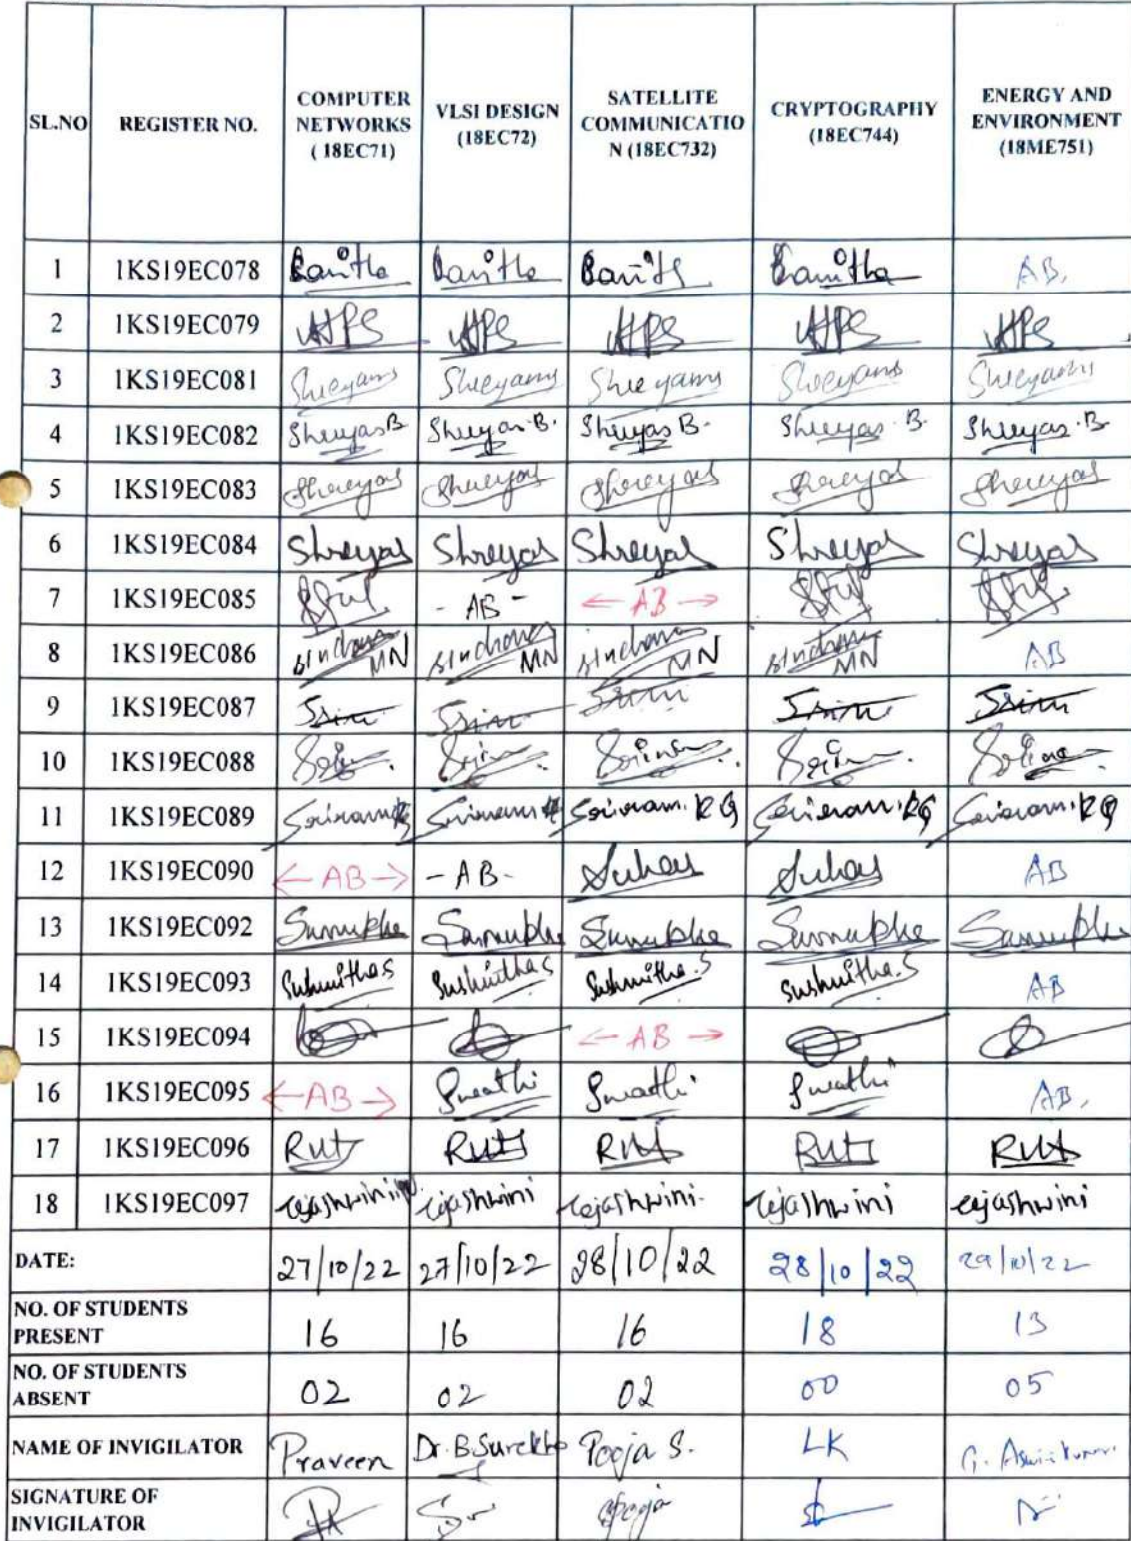 SL.NO REGISTER NO. COMPUTER NETWORKS ( 18EC71) VLSI DESIGN (18EC72) SATELLITE COMMUNICATIO N (18EC732) CRYPTOGRAPHY (18EC744) ENERGY AND ENVIRONMENT (18ME751)
1 1KS19EC078 AB.
2 1KS19EC079
3 1KS19EC081 Shreyams Shreyams Shreyams Shreyams Shreyams
4 1KS19EC082 Shreyas B Shreyas.B. Shreyas B. Shreyas.B. Shreyas.B.
5 1KS19EC083 Shreyas Shreyas Shreyas Shreyas Shreyas
6 1KS19EC084 Shreyas Shreyas Shreyas Shreyas Shreyas
7 1KS19EC085 - AB - ← AB →
8 1KS19EC086 sindhana MN sindhana MN sindhana MN sindhana MN AB
9 1KS19EC087
10 1KS19EC088
11 1KS19EC089 Sriram. RG
12 1KS19EC090 ← AB → - AB - Suhas Suhas AB
13 1KS19EC092
14 1KS19EC093 Sushmitha S Sushmitha S Sushmitha.S Sushmitha.S AB
15 1KS19EC094 ← AB →
16 1KS19EC095 ← AB → Swathi Swathi Swathi AB.
17 1KS19EC096
18 1KS19EC097 Tejashwini Tejashwini Tejashwini. Tejashwini Tejashwini
DATE: 27/10/22 27/10/22 28/10/22 28/10/22 29/10/22
NO. OF STUDENTS PRESENT 16 16 16 18 13
NO. OF STUDENTS ABSENT 02 02 02 00 05
NAME OF INVIGILATOR Praveen Dr. B Surekha Pooja S. LK
SIGNATURE OF INVIGILATOR Pooja